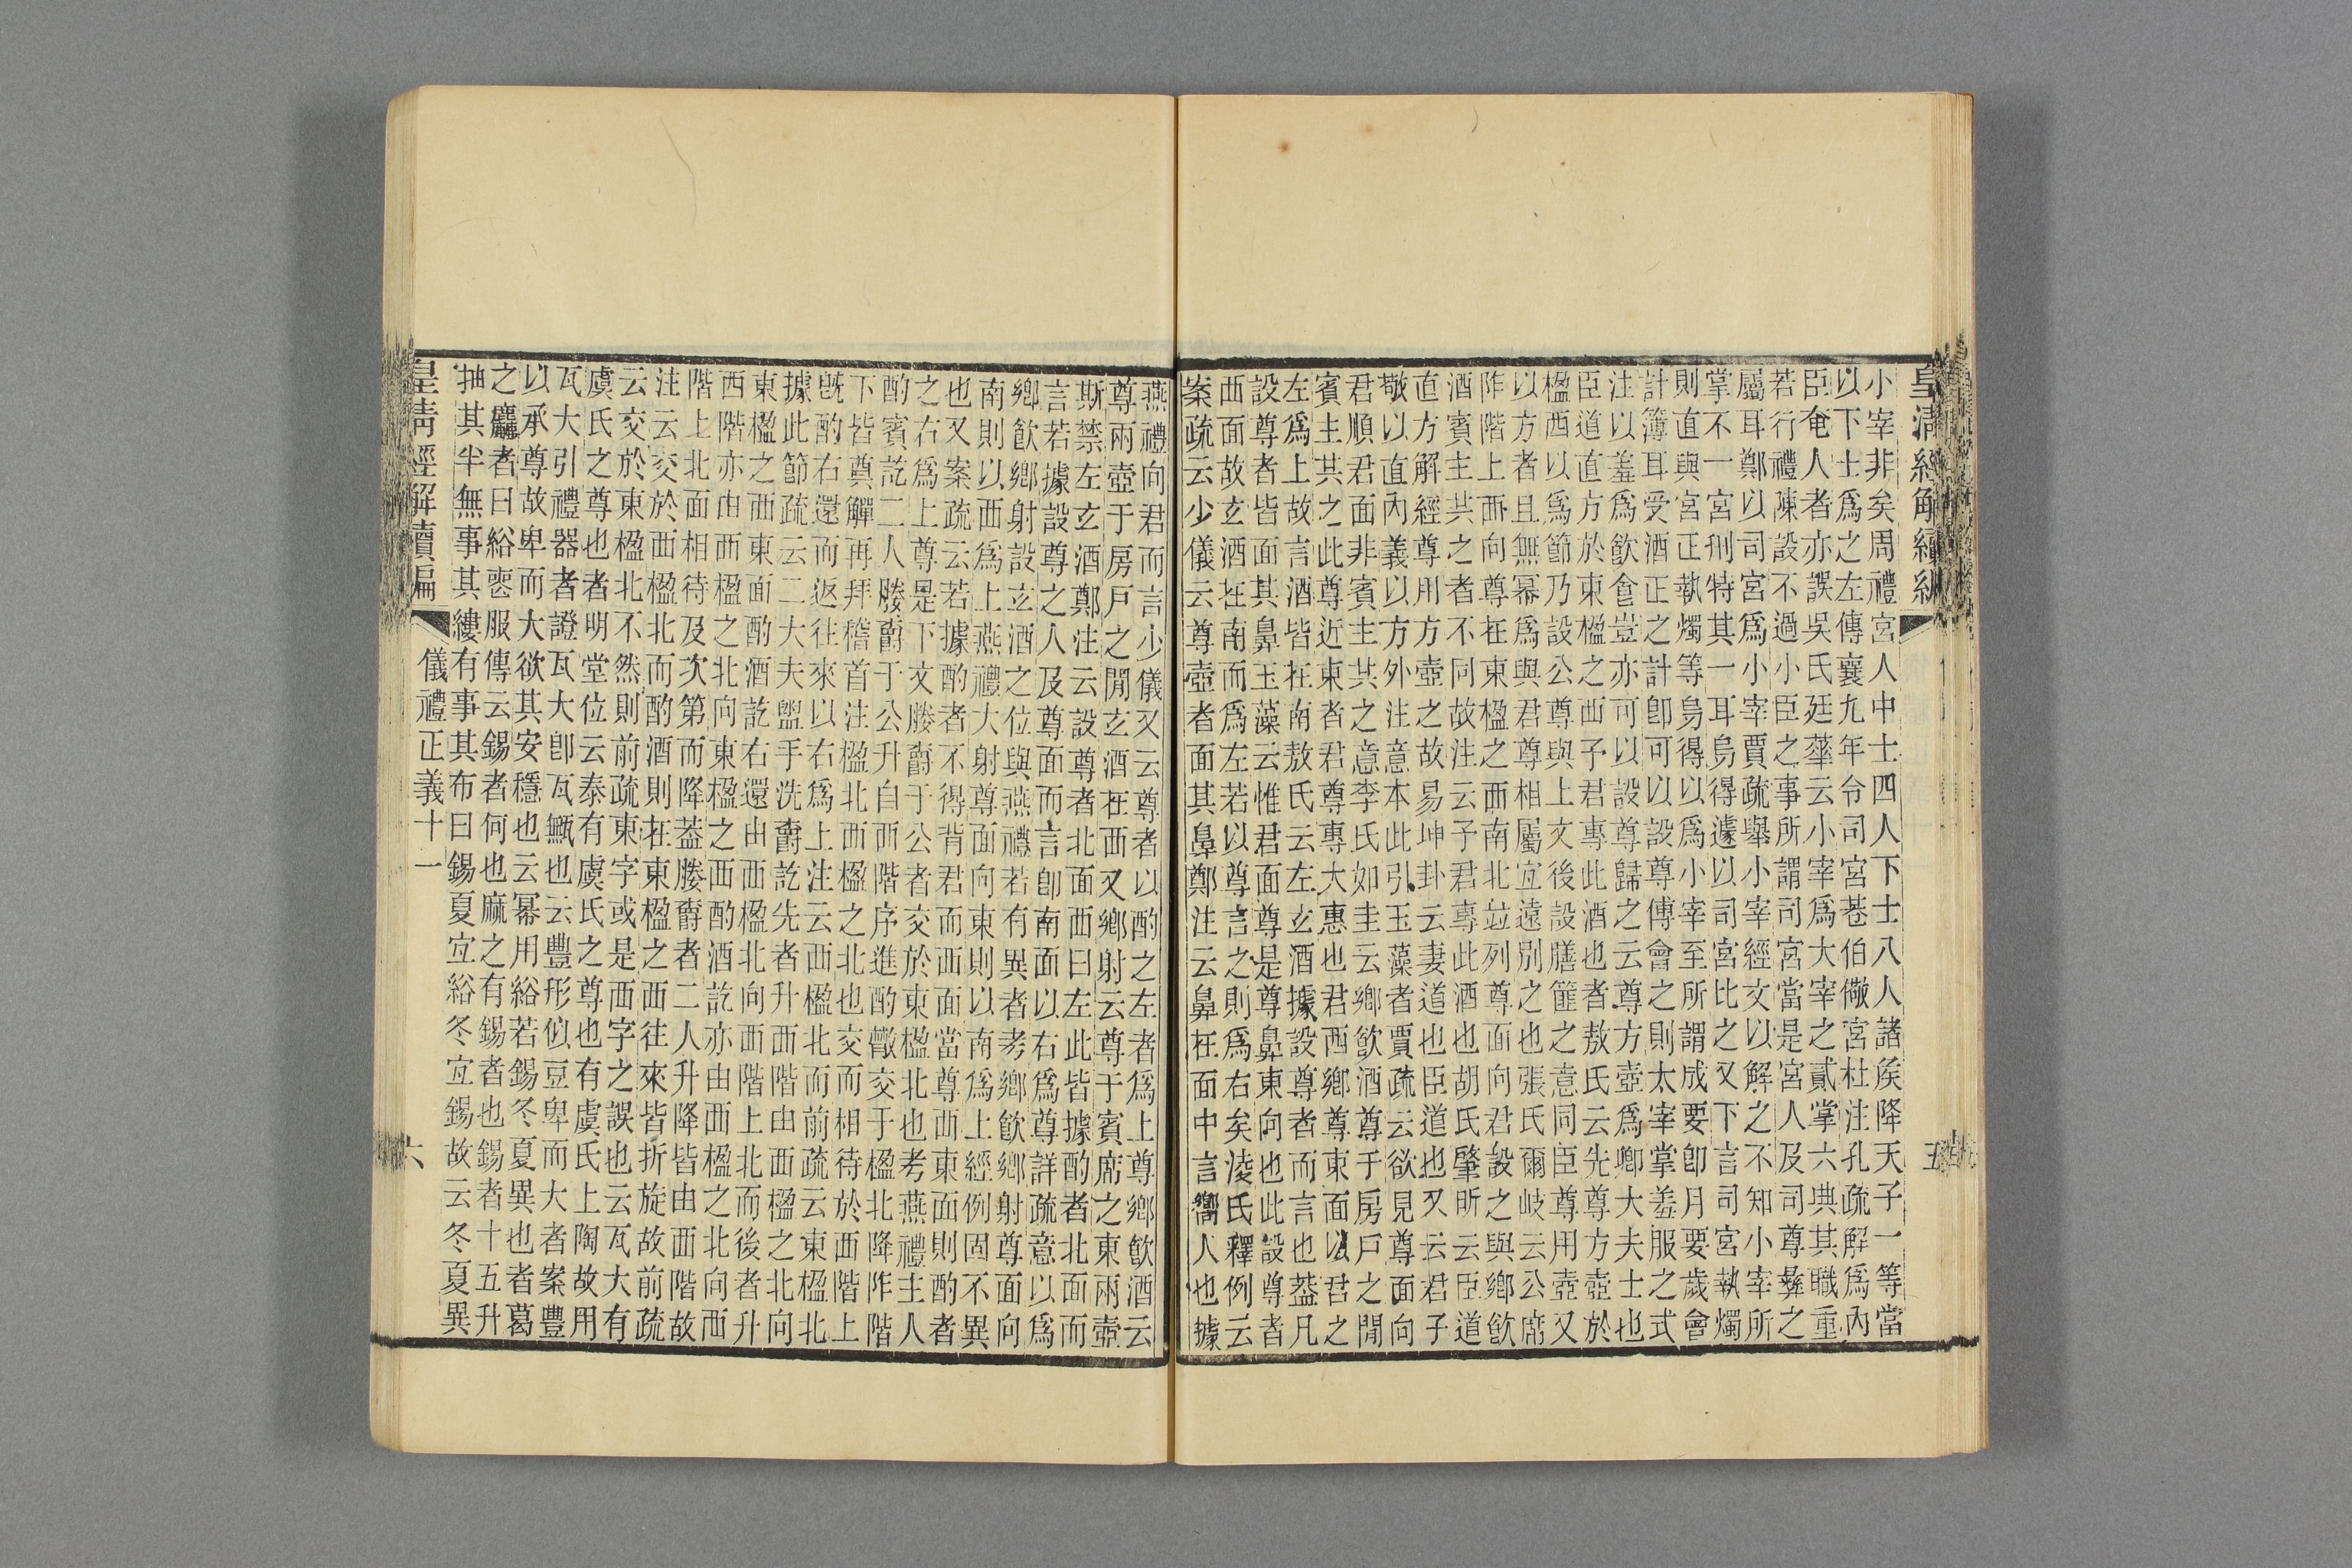 皇清經解續編
小宰非矣周禮宮人中士四人下士八人諸矦降天子一等當
以下士爲之左傳襄九年令司宮巷伯儆宮杜注孔疏解爲內
臣奄人者亦誤吳氏廷華云小宰爲大宰之貳掌六典其職重
若行禮陳設不過小臣之事所謂司宮當是宮人及司尊彝之
屬耳鄭以司宮爲小宰賈疏舉小宰經文以解之不知小宰所
掌不一宮刑特其一耳烏得遽以司宮比之又下言司宮執燭
則直與宮正執燭等烏得以爲小宰至所謂成要卽月要歲會
計簿耳受酒正之計卽可以設尊傅會之則太宰掌羞服之式
注以羞爲飮食豈亦可以設尊歸之云尊方壺爲卿大夫士也
臣道直方於東楹之西予君專此酒也者敖氏云先尊方壺於
楹西以爲節乃設公尊與上文後設膳篚之意同臣尊用壺又
以方者且無冪爲與君尊相屬宜遠別之也張氏爾岐云公席
阼階上西向尊在東楹之西南北竝列尊面向君設之與鄉飮
酒賓主共之者不同故注云子君專此酒也胡氏肇昕云臣道
直方解經尊用方壺之故易坤卦云妻道也臣道也又云君子
敬以直內義以方外注意本此引玉藻者賈疏云欲見尊面向
君順君面非賓主共之意李氏如圭云鄉飮酒尊于房戶之閒
賓主共之此尊近東者君尊專大惠也君西鄉尊東面以君之
左爲上故言酒皆在南敖氏云左玄酒據設尊者而言也葢凡
設尊者皆面其鼻玉藻云惟君面尊是尊鼻東向也此設尊者
西面故玄酒在南而爲左若以尊言之則爲右矣淩氏釋例云
案疏云少儀云尊壺者面其鼻鄭注云鼻在面中言嚮人也據
五
燕禮向君而言少儀又云尊者以酌之左者爲上尊鄉飮酒云
尊兩壺于房戶之閒玄酒在西又鄉射云尊于賓席之東兩壺
斯禁左玄酒鄭注云設尊者北面西曰左此皆據酌者北面而
言若據設尊之人及尊面而言卽南面以右爲尊詳疏意以爲
鄉飮鄉射設玄酒之位與燕禮若有異者考鄉飮鄉射尊面向
南則以西爲上燕禮大射尊面向東則以南爲上經例固不異
也又案疏云若據酌者不得背君而西面當尊西東面則酌者
之右爲上尊是下文媵爵于公者交於東楹北也考燕禮主人
酌賓訖二人媵爵于公升自西階序進酌觶交于楹北降阼階
下皆奠觶再拜稽首注楹北西楹之北也交而相待於西階上
旣酌右還而返往來以右爲上注云西楹北而前疏云東楹北
據此節疏云二大夫盥手洗爵訖先者升西階由西楹之北向
東楹之西東面酌酒訖右還由西楹北向西階上北而後者升
西階亦由西楹之北向東楹之西酌酒訖亦由西楹之北向西
階上北面相待及次第而降葢媵爵者二人升降皆由西階故
注云交於西楹北而酌酒則在東楹之西往來皆折旋故前疏
云交於東楹北不然則前疏東字或是西字之誤也云瓦大有
虞氏之尊也者明堂位云泰有虞氏之尊也有虞氏上陶故用
瓦大引禮器者證瓦大卽瓦甒也云豐形似豆卑而大者案豐
以承尊故卑而大欲其安穩也云冪用綌若錫冬夏異也者葛
之麤者曰綌喪服傳云錫者何也麻之有錫者也錫者十五升
抽其半無事其縷有事其布曰錫夏宜綌冬宜錫故云冬夏異
皇淸經解續編
儀禮正義十一
六